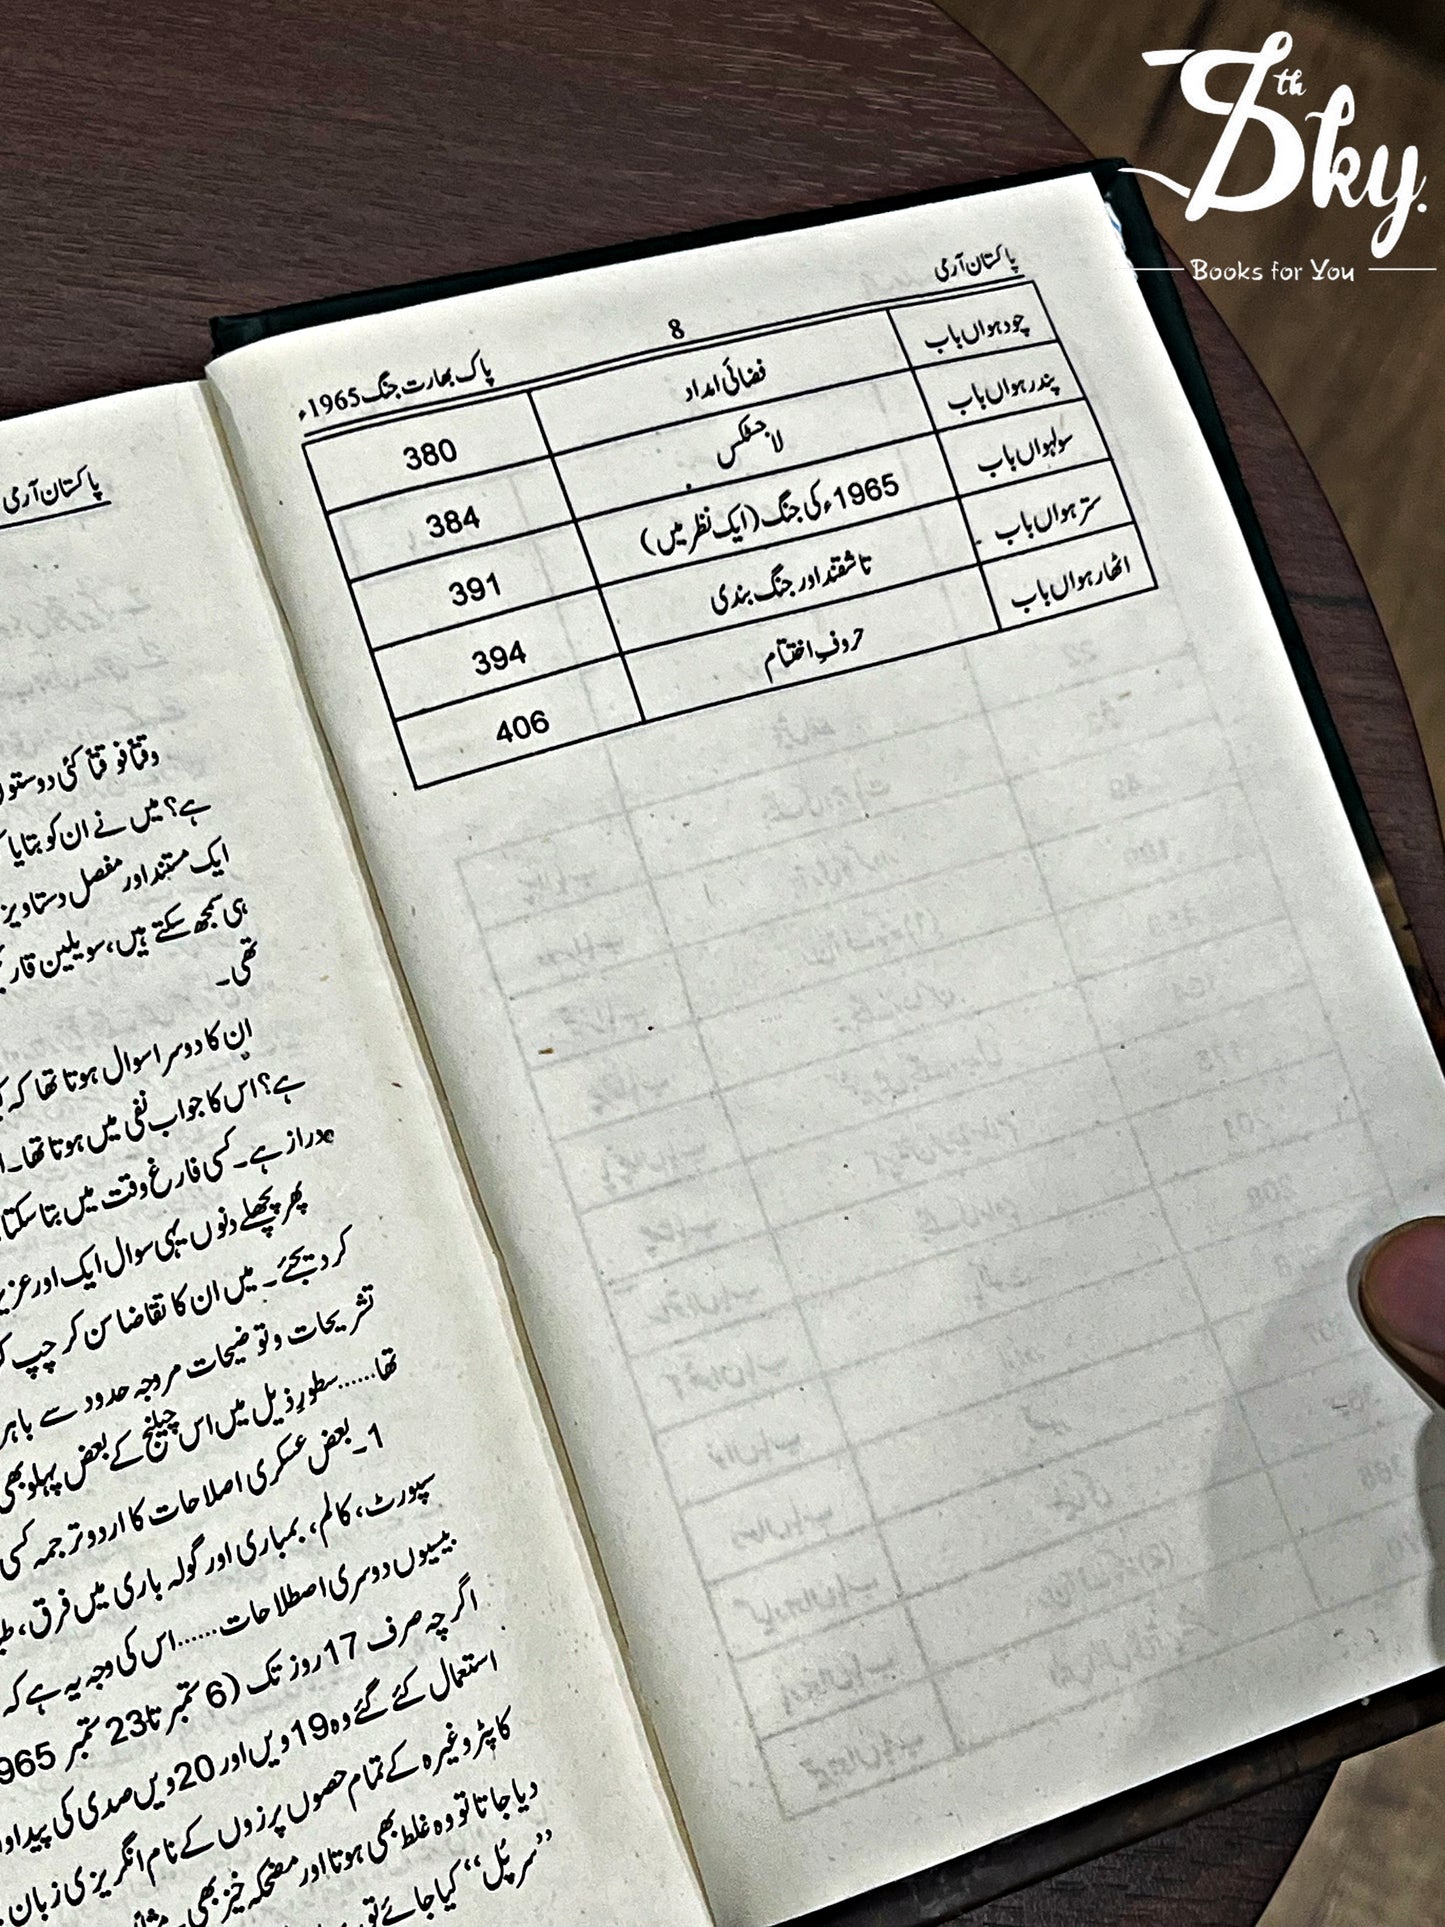 7th Sky.
Books for You
پاکستان آرمی
8
پاک بھارت جنگ 1965ء
چودہواں باب فضائی امداد 380
پندرہواں باب لاجسٹکس 384
سولہواں باب 1965ء کی جنگ (ایک نظر میں) 391
سترہواں باب تاشقند اور جنگ بندی 394
اٹھارہواں باب حروفِ اختتام 406
پاکستان آرمی
وقتاً فوقتاً کئی دوستوں
ہے؟ میں نے ان کو بتایا
ایک مستند اور مفصل دستاویز
ہی سمجھ سکتے ہیں، سویلین
تھی۔
ان کا دوسرا سوال ہوتا تھا کہ
ہے؟ اس کا جواب نفی میں ہوتا تھا۔
دراز ہے۔ کسی فارغ وقت میں بتا سکتا
پھر پچھلے دنوں یہی سوال ایک اور عزیز
کر دیجئے۔ میں ان کا تقاضا سن کر چپ
تشریحات و توضیحات مروجہ حدود سے باہر
تھا......سطورِ ذیل میں اس چیلنج کے بعض پہلو بھی
1۔ بعض عسکری اصلاحات کا اردو ترجمہ کسی
سپورٹ، کالم، بمباری اور گولہ باری میں فرق،
بیسیوں دوسری اصطلاحات......اس کی وجہ یہ ہے کہ
اگرچہ صرف 17 روز تک (6 ستمبر تا 23 ستمبر 1965
استعمال کئے گئے وہ 19 ویں اور 20 ویں صدی کی
کاپٹر وغیرہ کے تمام حصوں پرزوں کے نام انگریزی زبان
دیا جاتا تو وہ غلط بھی ہوتا اور مضحکہ خیز بھی۔
”سرپُل“ کیا جائے تو